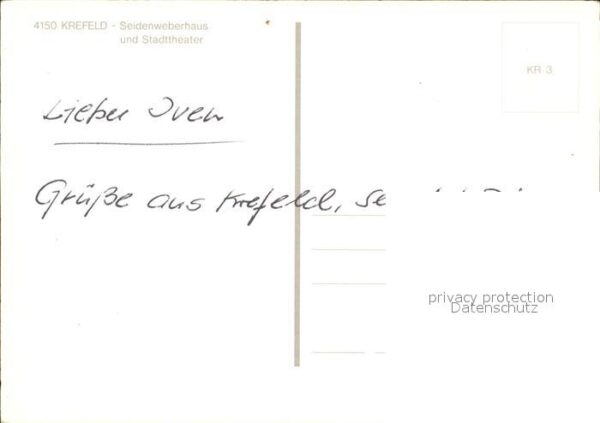 4150 KREFELD - Seidenweberhaus
und Stadttheater
KR 3
Lieber Sven
Grüße aus Krefeld,
privacy protection
Datenschutz